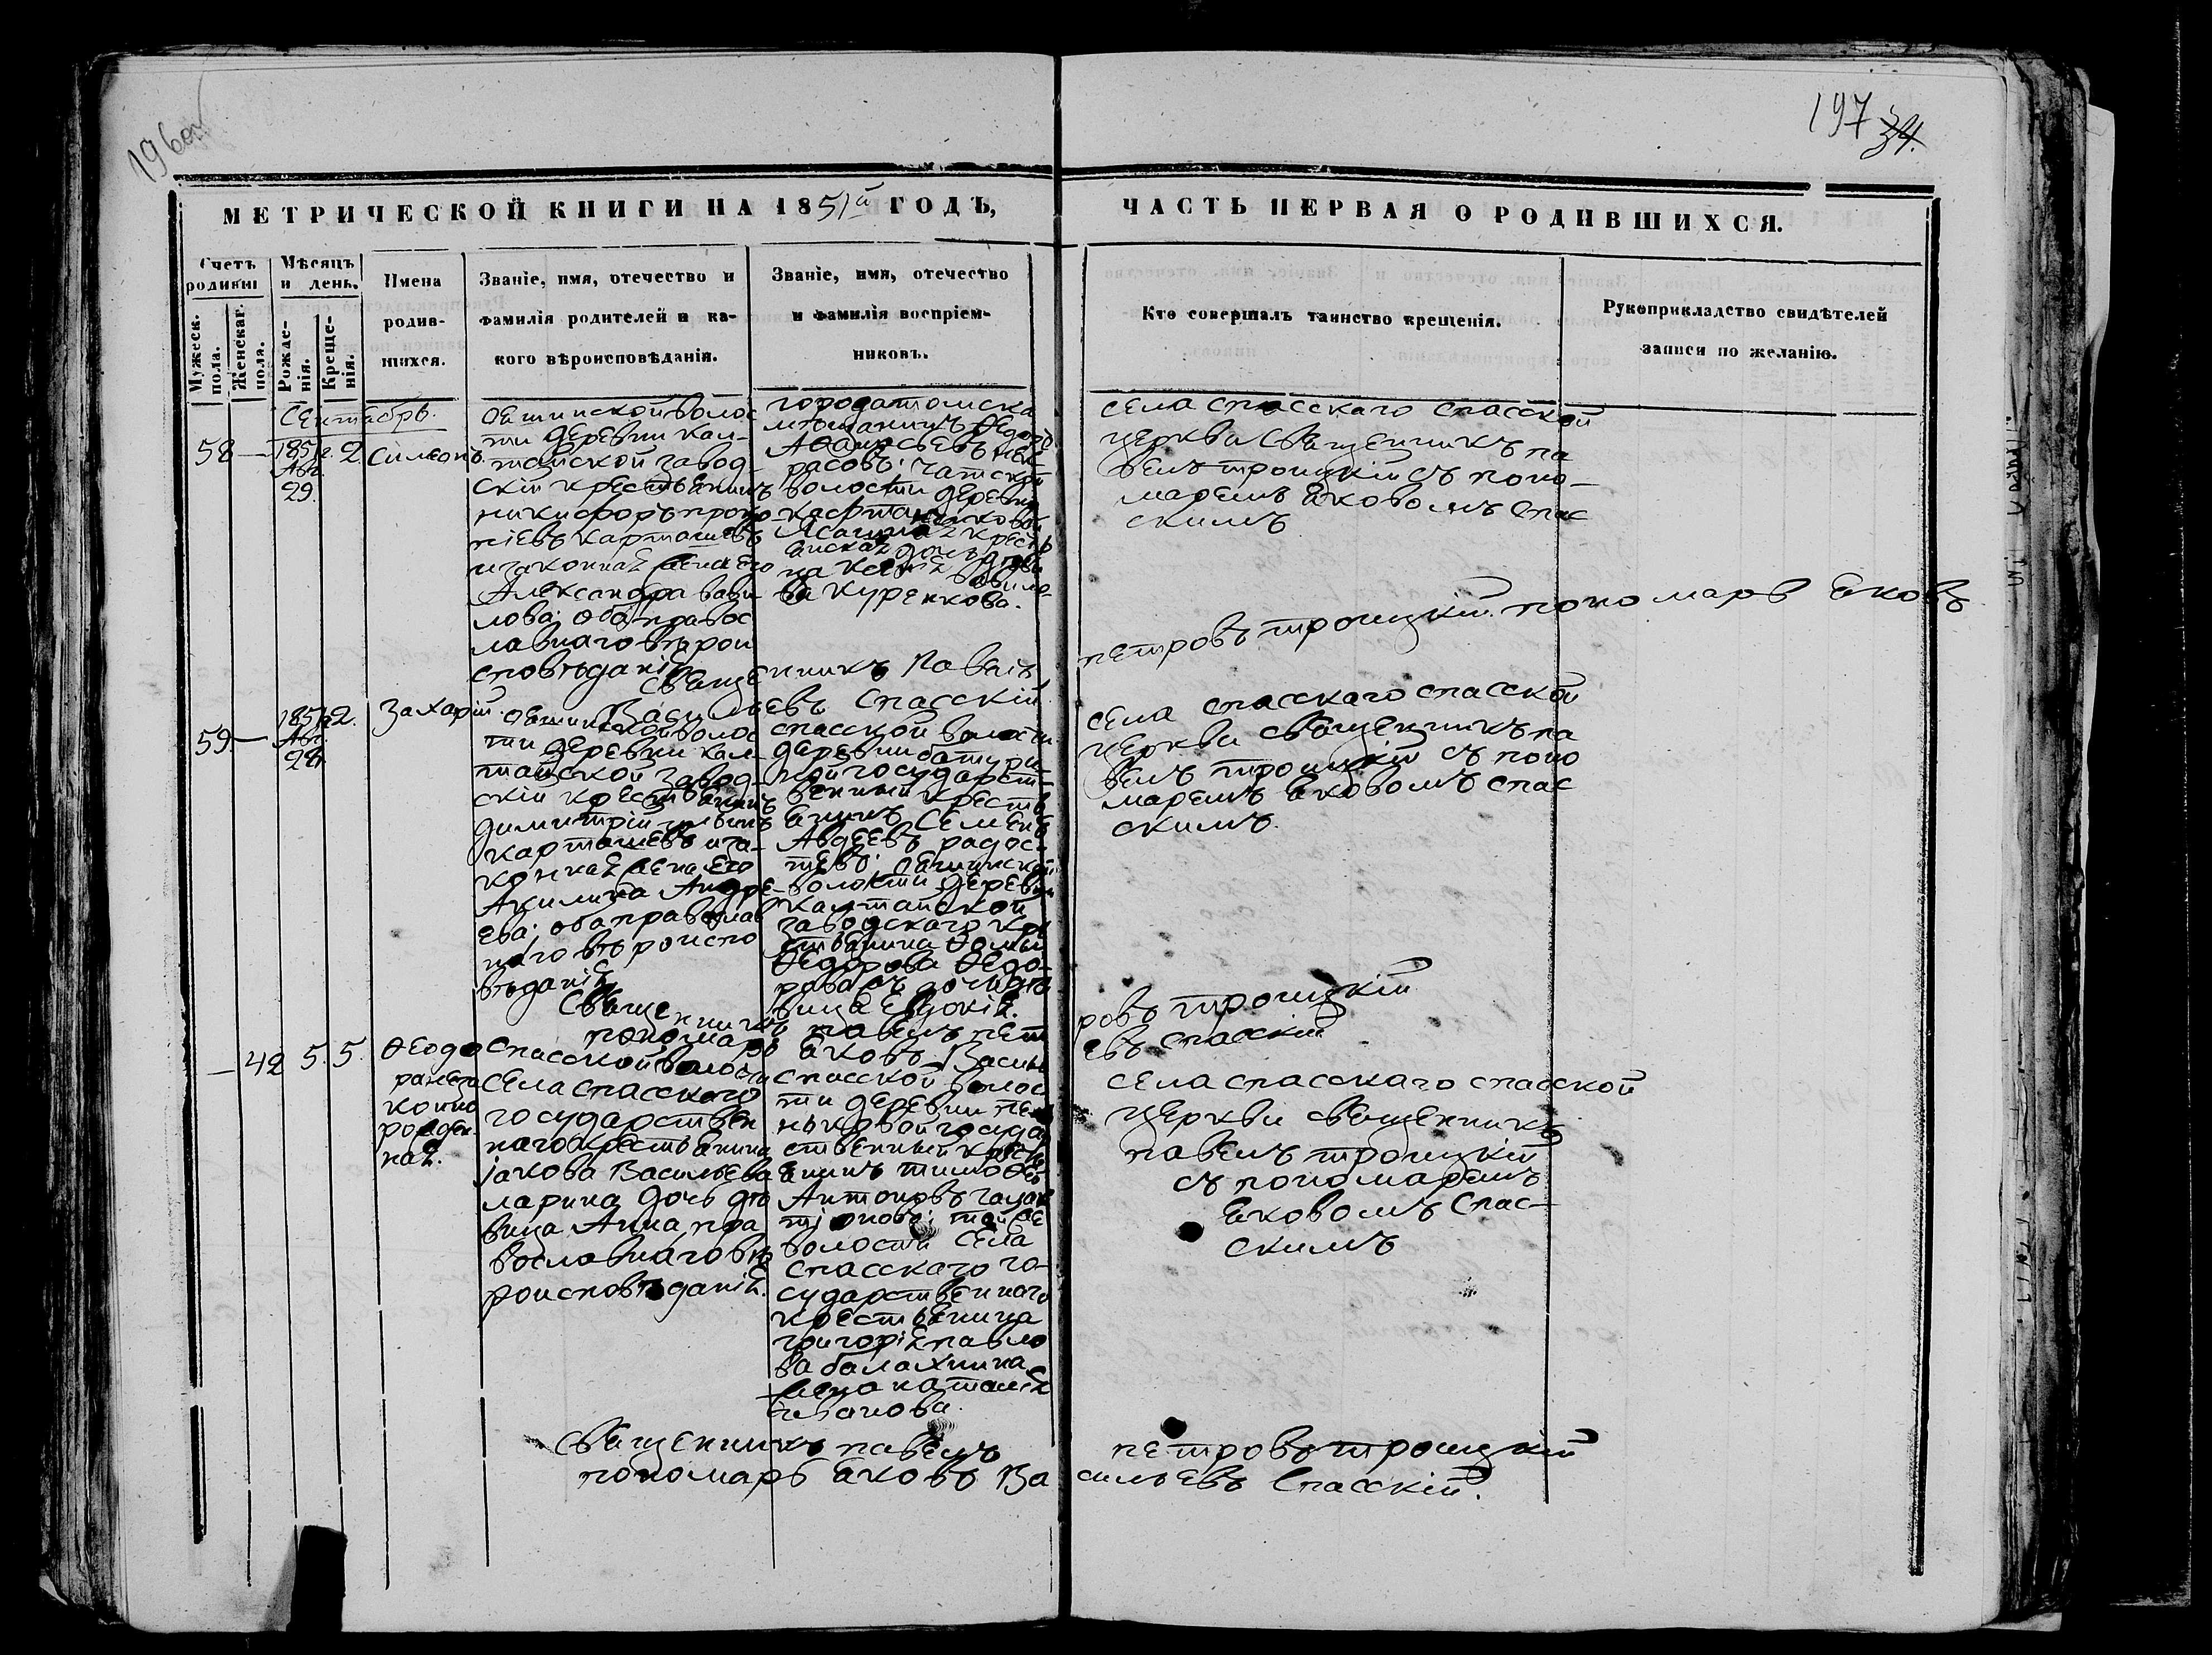 196 об
197 34.
МЕТРИЧЕСКОЙ КНИГИ НА 1851й ГОДЪ,
ЧАСТЬ ПЕРВАЯ О РОДИВШИХСЯ.
Счетъ родивш
Мужеск. пола.
Женскаг. пола.
Мѣсяцъ и день.
Рожде-нія.
Креще-нія.
Имена
родив-
шихся.
Званіе, имя, отечество и
фамилія родителей и ка-
кого вѣроисповѣданія.
Званіе, имя, отечество
и фамилія воспріем-
никовъ.
Кто совершалъ таинство крещенія.
Рукоприкладство свидѣтелей
записи по желанію.
Сентабрь.
58 — 1851г. Авг. 29. 2 Симеонъ
волос
ти деревни кал-
тайской завод-
скій крестьянинъ
никифоръ проко
піевъ карташевъ
и законная жена его
Александра вави-
лова; оба правос
лавнаго вѣрои
сповѣданія
города томска
мѣщанинъ Ѳедоръ
чатской
волости деревни
крест
янская дочь дѣви
ва куренкова.
села спасскаго спасской
церкви Священникъ па
велъ троицкій съ поно-
маремъ Яковомъ Спас
скимъ
Священникъ Павелъ петровъ троицкій. пономарь Яковъ
Васильевъ Спасскій.
59 — 1851г. Авг. 2. Захарій.
волос
ти деревни кал-
тайской завод-
скій крестьянинъ
димитрій
карташевъ и за-
конная жена его
Акилина Андре-
ева; оба православ
наго вѣроиспо
вѣданія
спасской волости
деревни батурин
кой государст-
венный кресть
янинъ Семенъ
Авдеевъ радос-
тевъ;
волости деревни
калтайской
заводскаго кре
стьянина Ѳомы
Ѳедорова Ѳедо-
рова дочь дѣ
вица Евдокія.
села спасскаго спасской
церкви священникъ па
велъ троицкій съ поно
маремъ яковомъ спас
скимъ.
Священникъ павелъ петровъ троицкій
пономарь Яковъ Васильевъ спасскій
— 42 5. 5. Ѳеодо
ра неза
конно
рожден
ная.
Спасской волости
села спасскаго
государствен
наго крестьянина
Іакова Васильева
ларина дочь дѣ
вица Анна, пра
вославнаго вѣ
роисповѣданія.
спасской волос
ти деревни
государ
ственный кресть
янинъ тимоѳей
Антоновъ
той же
волости села
спасскаго го-
сударственнаго
крестьянина
григорія павло
ва балахнина
жена наталія
Иванова.
села спасскаго спасской
церкви священникъ
павелъ троицкій
съ пономаремъ
Яковомъ Спас-
скимъ
Священникъ павелъ петровъ троицкій
пономарь Яковъ Васильевъ Спасскій.